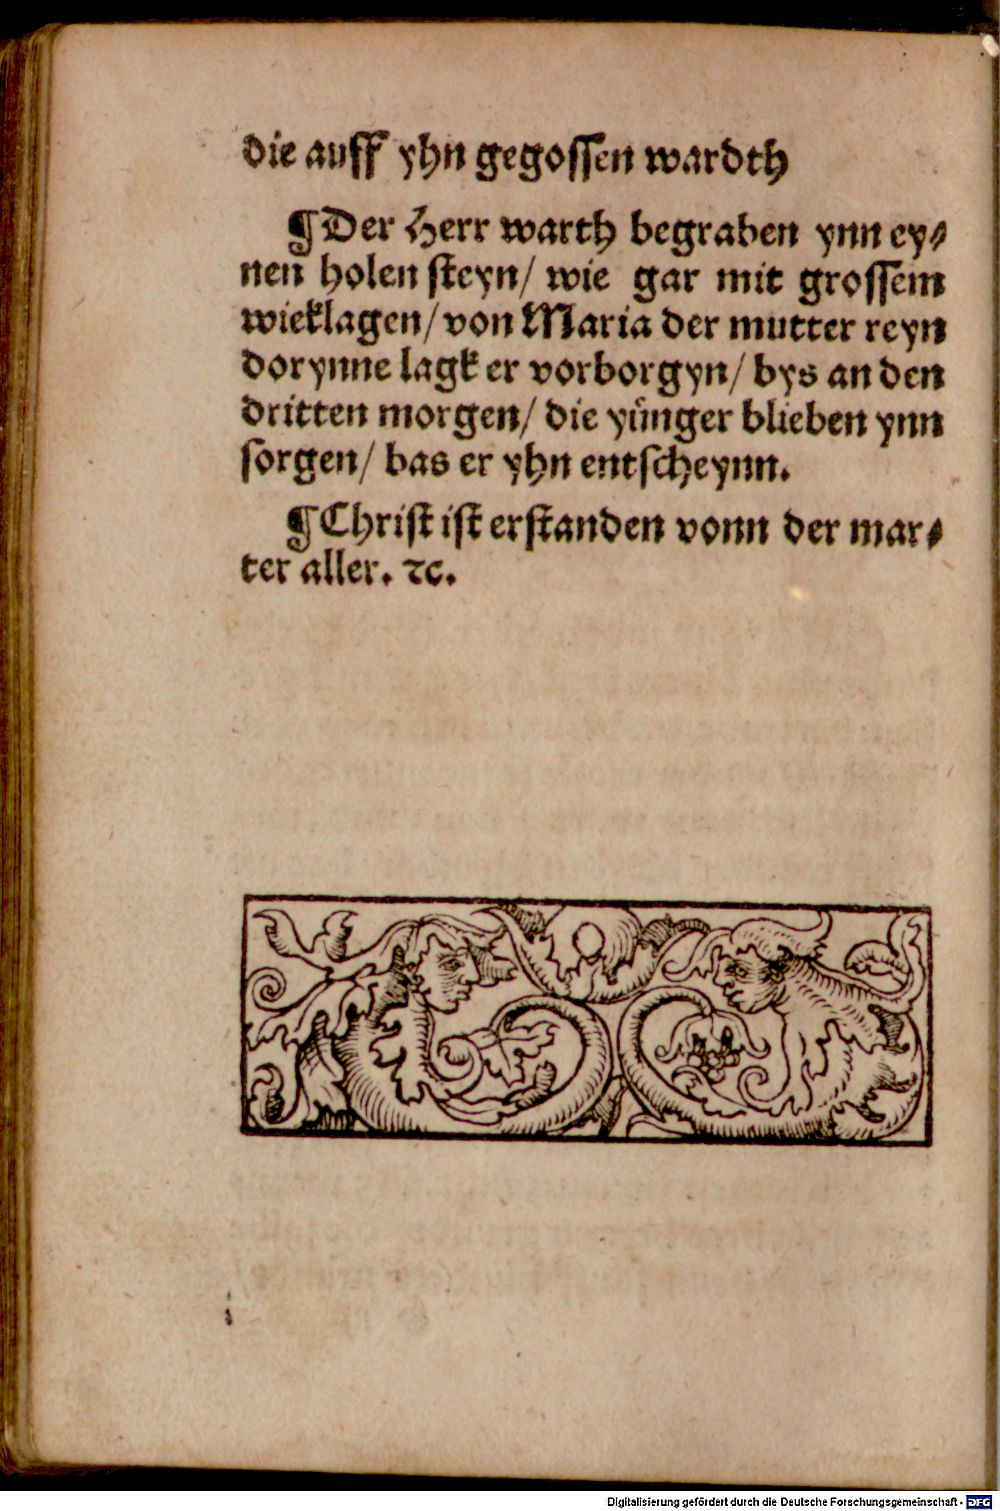 die auff yhn gegossen wardth
¶Der Herr warth begraben ynn ey-
nen holen steyn/ wie gar mit grossem
wieklagen/ von Maria der mutter reyn
dorynne lagk er vorborgyn/ bys an den
dritten morgen/ die yünger blieben ynn
sorgen/ bas er yhn entscheynn.
¶Christ ist erstanden vonn der mar-
ter aller. ⁊c.
Digitalisierung gefördert durch die Deutsche Forschungsgemeinschaft - DFG